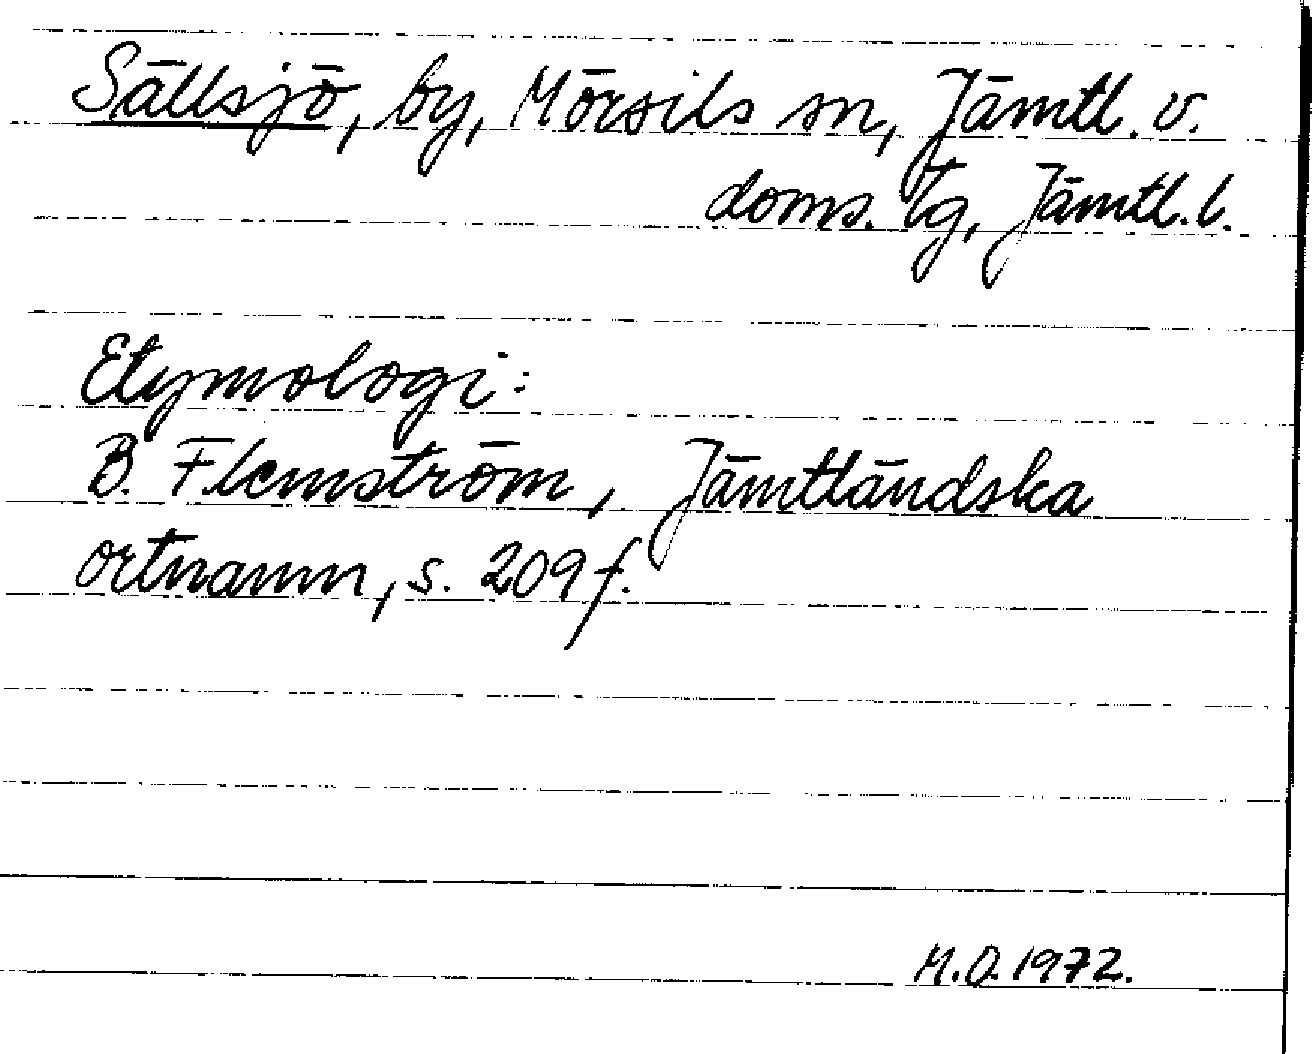 Sällsjö, by, Mörsils sn, Jämtl. v.
doms. tg, Jämtl. l.
Etymologi:
B. Flemström, Jämtländska
ortnamn, s. 209 f.
M.O. 1972.